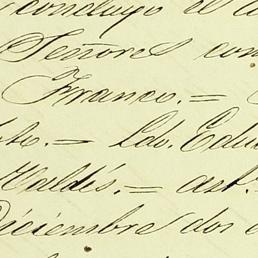 concluyo el
Señores con
Franco. =
= Ldo. Edu
Valdés. = ant.
Diciembre dos